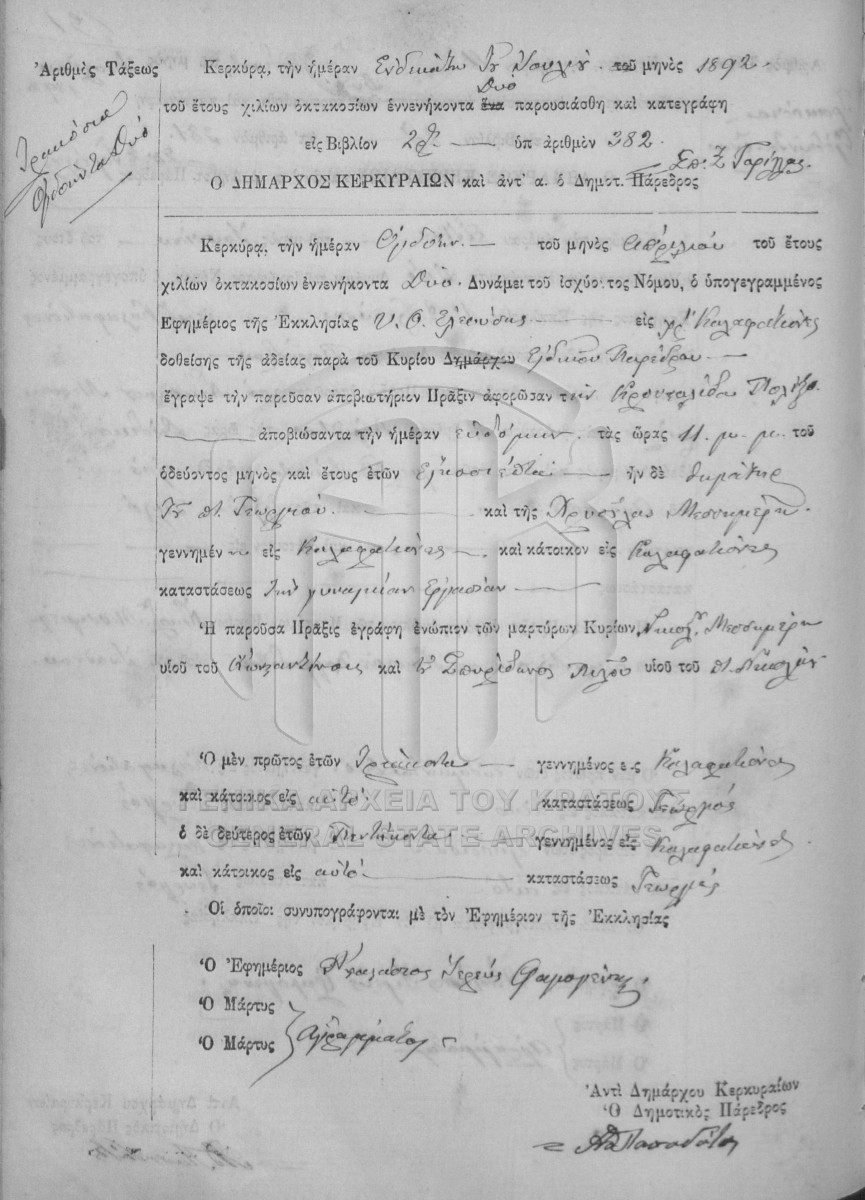 Ἀριθμὸς Τάξεως
Τριακόσια
Ὀγδοήντα δύο
Κερκύρᾳ, τὴν ἡμέραν Ἑνδεκάτην τοῦ Ἰουλίου τοῦ μηνὸς 1892
δύο
τοῦ ἔτους χιλίων ὀκτακοσίων ἐννενήκοντα ἕνα παρουσιάσθη καὶ κατεγράφη
εἰς Βιβλίον 2 ὑπ ἀριθμὸν 382
Ὁ ΔΗΜΑΡΧΟΣ ΚΕΡΚΥΡΑΙΩΝ καὶ ἀντ' α. ὁ Δημοτ. Πάρεδρος
Κερκύρᾳ, τὴν ἡμέραν Ὀγδόην τοῦ μηνὸς Ἀπριλίου τοῦ ἔτους
χιλίων ὀκτακοσίων ἐννενήκοντα δύο. Δυνάμει τοῦ ἰσχύοντος Νόμου, ὁ ὑπογεγραμμένος
Ἐφημέριος τῆς Ἐκκλησίας Υ. Θ. Ἐλεούσης εἰς χρ. Καλαφατιόνες
δοθείσης τῆς ἀδείας παρὰ τοῦ Κυρίου Δημάρχου Εἰδικοῦ Παρέδρου
ἔγραψε τὴν παροῦσαν ἀποβιωτήριον Πρᾶξιν ἀφορῶσαν τὴν Κρουσταλίδα
ἀποβιώσαντα τὴν ἡμέραν ἑβδόμην τὰς ὥρας 11 μ. μ. τοῦ
ὁδεύοντος μηνὸς καὶ ἔτους ἐτῶν Εἴκοσι ἑπτὰ ἦν δὲ θυγάτηρ
τοῦ π. Γεωργίου καὶ τῆς Χρυσούλας Μεσσημέρη
γεννημέν ην εἰς Καλαφατιόνες καὶ κάτοικον εἰς Καλαφατιόνες
καταστάσεως τὴν γυναικίαν Ἐργασίαν
Ἡ παροῦσα Πρᾶξις ἐγράφη ἐνώπιον τῶν μαρτύρων Κυρίων, Νικολ. Μεσσημέρη
υἱοῦ τοῦ Κωνσταντίνου καὶ τοῦ Σπυρίδωνος υἱοῦ τοῦ π. Νικολάου
Ὁ μὲν πρῶτος ἐτῶν Τριάκοντα γεννημένος εἰς Καλαφατιόνες
καὶ κάτοικος εἰς αὐτὸ καταστάσεως Γεωργός
ὁ δὲ δεύτερος ἐτῶν Πεντήκοντα γεννημένος εἰς Καλαφατιόνες
καὶ κάτοικος εἰς αὐτὸ καταστάσεως Γεωργός
Οἱ ὁποῖοι συνυπογράφονται μὲ τὸν Ἐφημέριον τῆς Ἐκκλησίας
Ὁ Ἐφημέριος Ἱερεύς
Ὁ Μάρτυς
Ὁ Μάρτυς Ἀγράμματοι
Ἀντὶ Δημάρχου Κερκυραίων
Ὁ Δημοτικὸς Πάρεδρος
ΓΕΝΙΚΑ ΑΡΧΕΙΑ ΤΟΥ ΚΡΑΤΟΥΣ
GENERAL STATE ARCHIVES